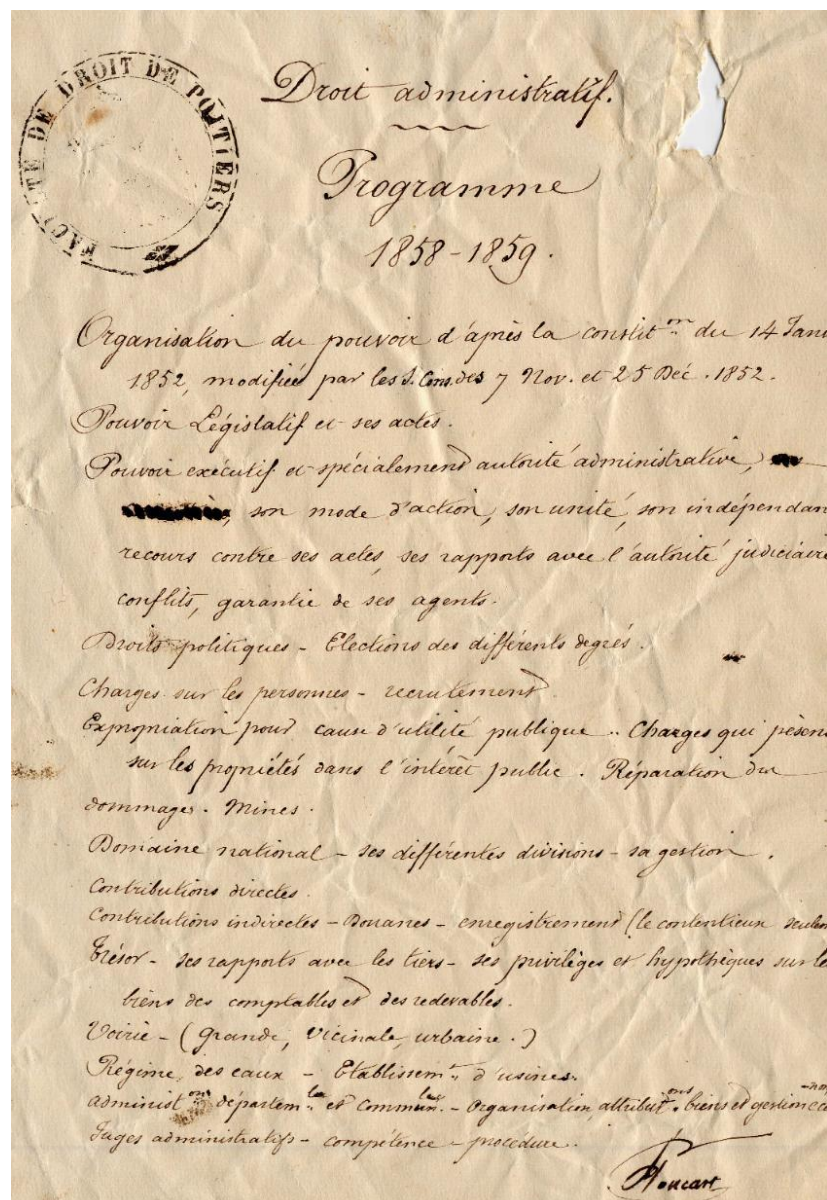 FACULTE DE DROIT DE POITIERS
Droit administratif.
Programme
1858-1859.
Organisation du pouvoir d'après la constit.on du 14 Janv
1852, modifiée par les S. Cons. des 7 Nov. et 25 Déc. 1852.
Pouvoir Législatif et ses actes.
Pouvoir exécutif et spécialement autorité administrative,
son mode d'action, son unité, son indépendan
recours contre ses actes, ses rapports avec l'autorité judiciaire
conflits, garantie de ses agents.
Droits politiques - Elections des différents degrés.
Charges sur les personnes - recrutement.
Expropriation pour cause d'utilité publique .. Charges qui pèsent
sur les propriétés dans l'intérêt public. Réparation du
dommage. Mines.
Domaine national - ses différentes divisions - sa gestion.
Contributions directes.
Contributions indirectes - Douanes - enregistrement (le contentieux seulem
Trésor - ses rapports avec les tiers - ses privilèges et hypothèques sur le
biens des comptables et des redevables.
Voirie - (grande, vicinale, urbaine.)
Régime des eaux - Etablissem.t d'usines.
administ.on départem.le et commun.le - Organisation, attribut.ons, biens et gestion
Juges administratifs - compétence - procédure.
Foucart